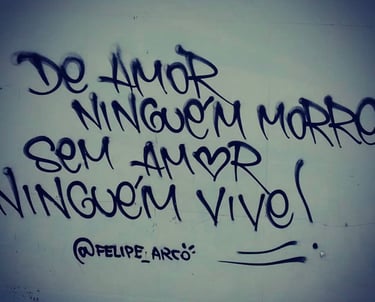 DE AMOR
NINGUÉM MORRE
SEM AMOR
NINGUÉM VIVE!
@FELIPE_ARCO